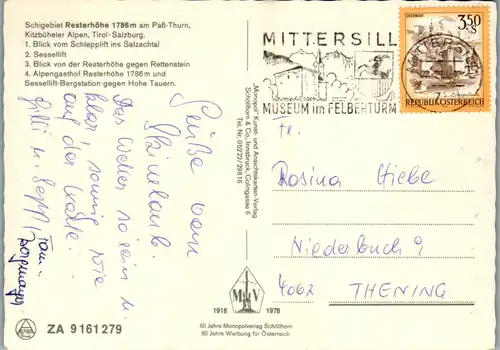 Schigebiet Resterhöhe 1786 m am Paß-Thurn,
Kitzbüheler Alpen, Tirol-Salzburg.
1. Blick vom Schlepplift ins Salzachtal
2. Sessellift
3. Blick von der Resterhöhe gegen Rettenstein
4. Alpengasthof Resterhöhe 1786 m und
Sessellift-Bergstation gegen Hohe Tauern.
Grüße vom
Skiurlaub.
Das Wetter so rein u.
klar, sonnig wie
auf der Karte.
u. Sepp
Fam.
"Monopol" Kunst- und Ansichtskarten-Verlag
Schöllhorn & Co, Innsbruck, Colingasse 6
Tel. Nr. 05222/29816
MITTERSILL
MUSEUM im FELBERTURM
3.50
S
REPUBLIK ÖSTERREICH
Fr.
Rosina Hiebe
Niederbuch 9
4062 THENING
M V
1918 1978
60 Jahre Monopolverlag Schöllhorn
60 Jahre Werbung für Österreich
ZA 9161279